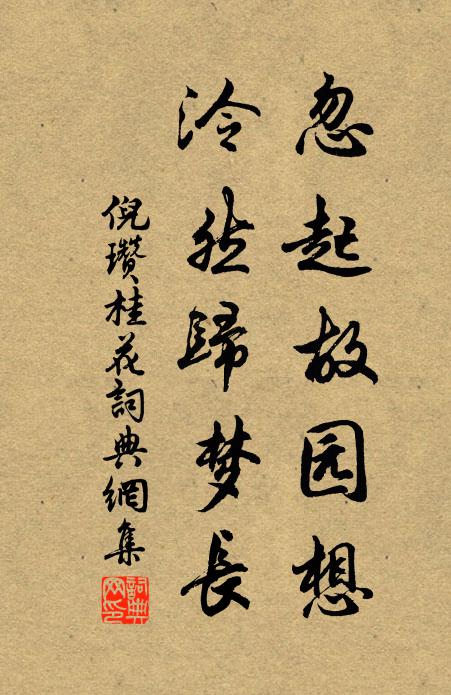 忽起故园想
泠然歸梦長
倪瓚桂花詞典網集
詞典
网印